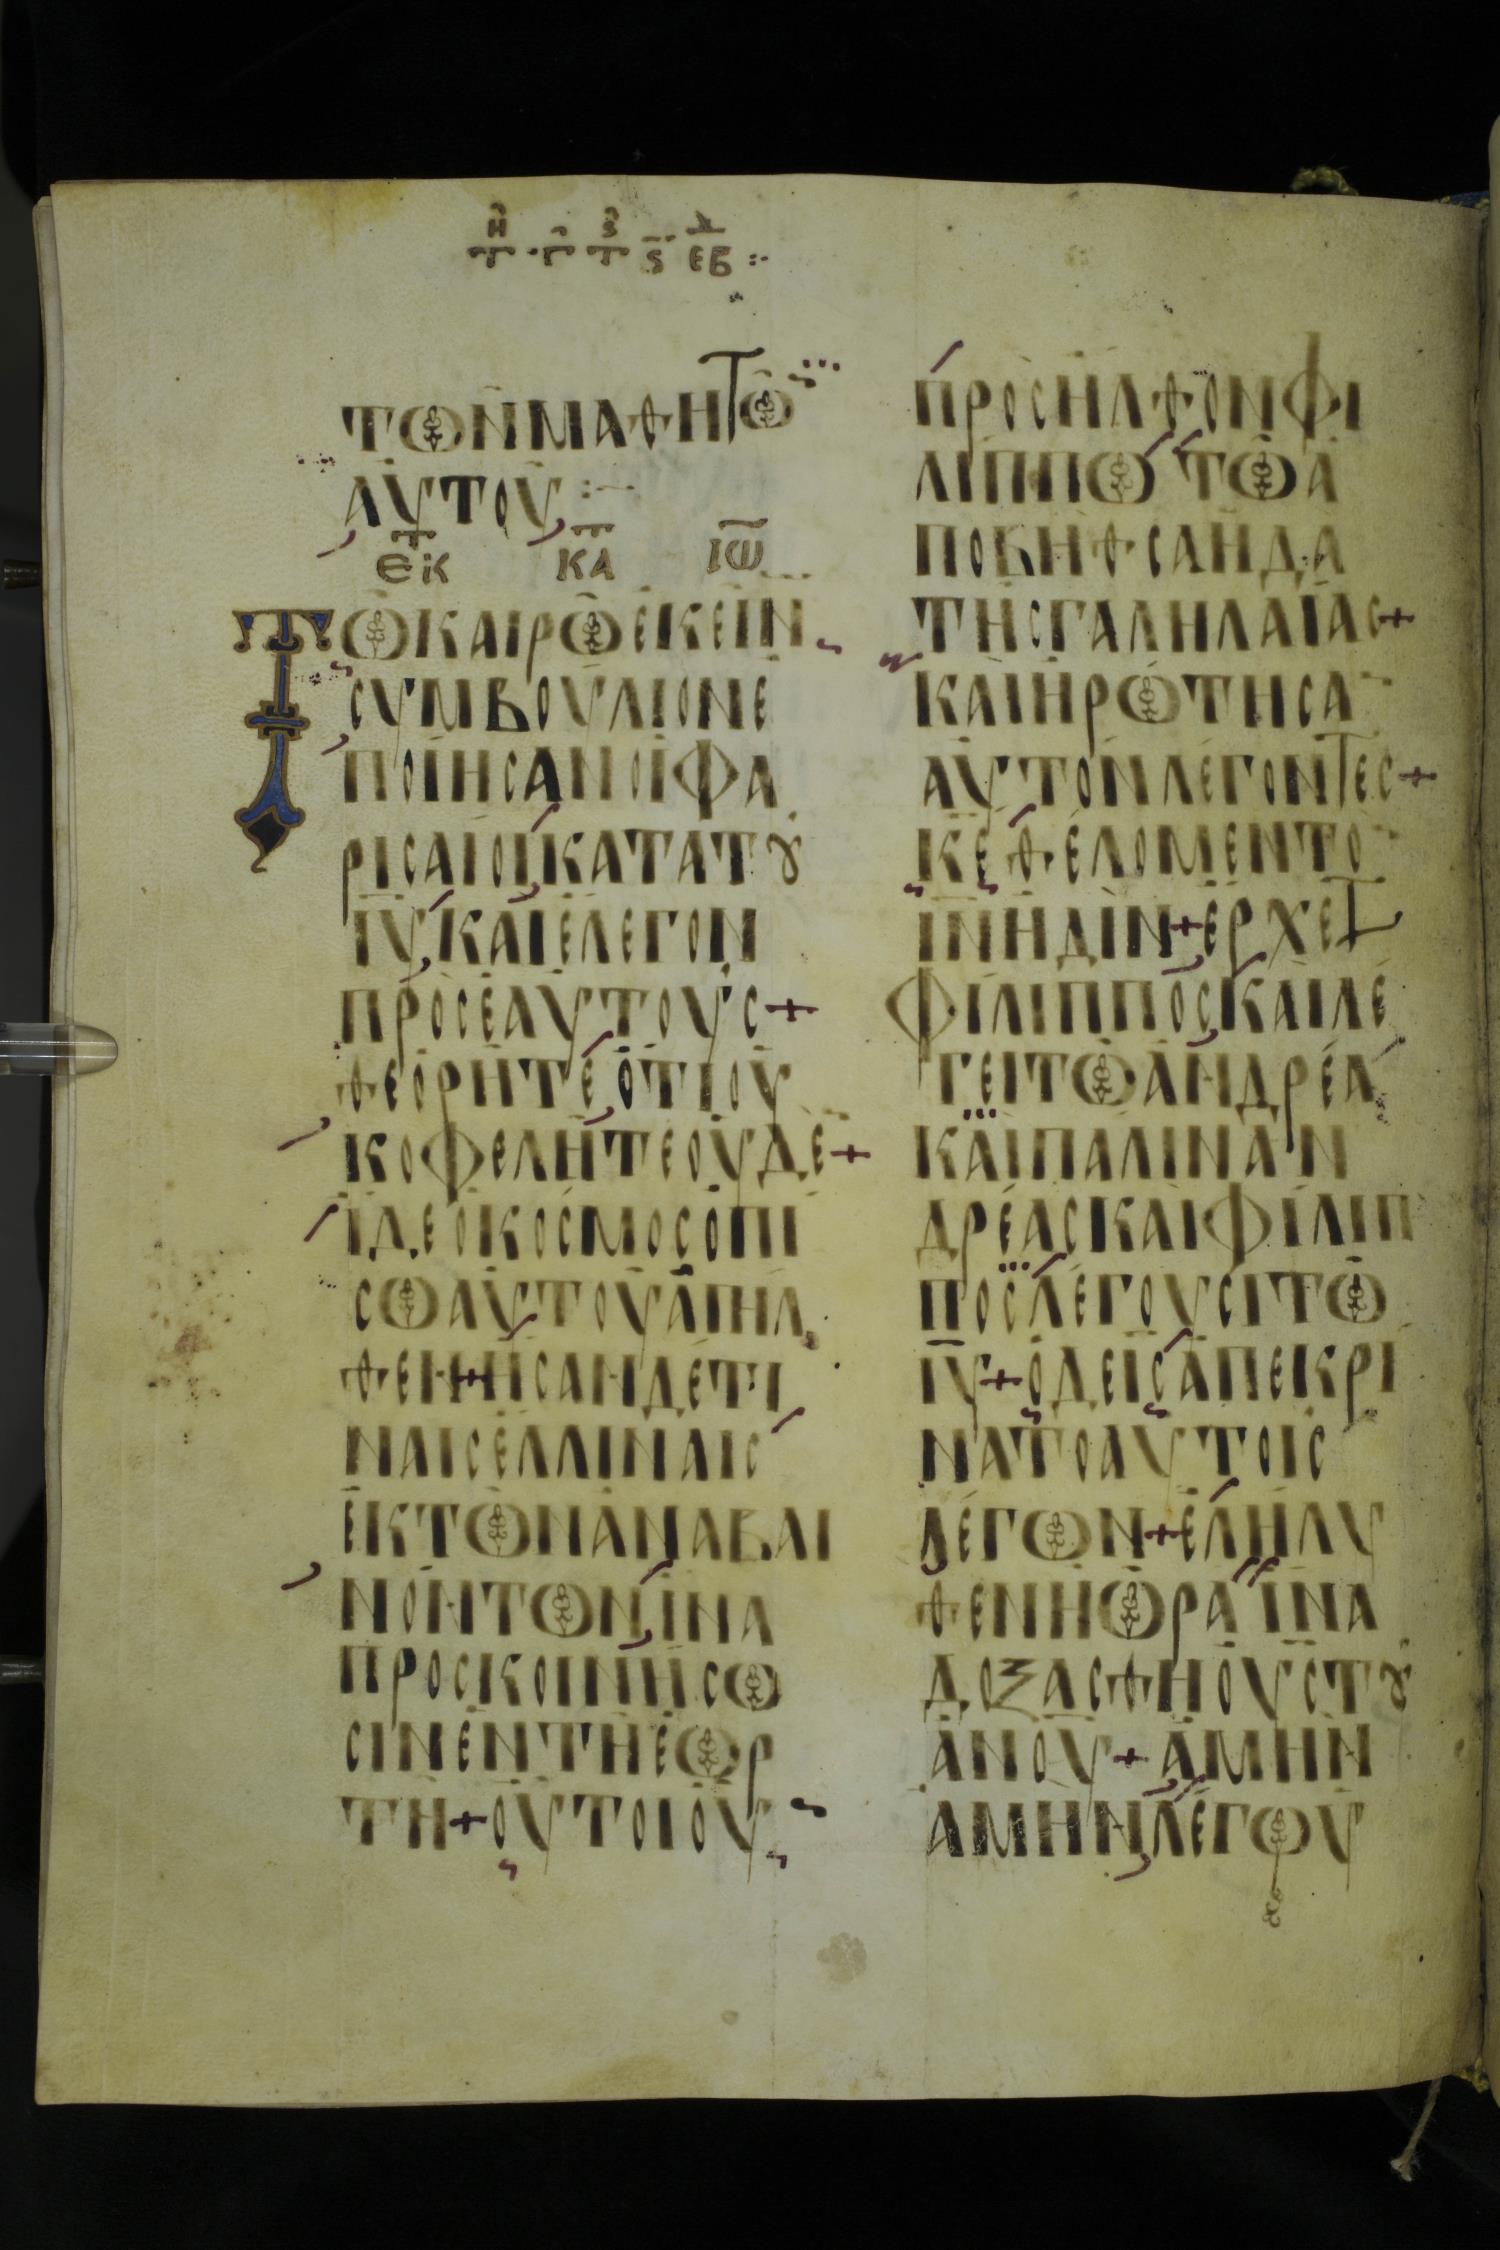 ΤΩΝ ΜΑΘΗΤΩ
ΑΥΤΟΥ
ΕΚ ΚΑ ΙΩ
ΤΩ ΚΑΙΡΩ ΕΚΕΙΝ
ΣΥΜΒΟΥΛΙΟΝ Ε
ΠΟΙΗΣΑΝ ΟΙ ΦΑ
ΡΙΣΑΙΟΙ ΚΑΤΑ ΤȢ
ΙΥ ΚΑΙ ΕΛΕΓΟΝ
ΠΡΟΣ ΕΑΥΤΟΥΣ +
ΘΕΟΡΗΤΕ ΟΤΙ ΟΥ
Κ ΟΦΕΛΗΤΕ ΟΥΔΕ +
ΙΔΕ Ο ΚΟΣΜΟΣ ΟΠΙ
ΣΩ ΑΥΤΟΥ ΑΠΗΛ
ΘΕΝ + ΗΣΑΝ ΔΕ ΤΙ
ΝΑΙΣ ΕΛΛΙΝΑΙΣ
ΕΚ ΤΩΝ ΑΝΑΒΑΙ
ΝΟΝΤΩΝ ΙΝΑ
ΠΡΟΣΚΟΙΝΗΣΩ
ΣΙΝ ΕΝ ΤΗ ΕΩΡ
ΤΗ + ΟΥΤΟΙ ΟΥ
ΠΡΟΣΗΛΘΟΝ ΦΙ
ΛΙΠΠΩ ΤΩ Α
ΠΟ ΒΗΘΣΑΗΔΑ
ΤΗΣ ΓΑΛΗΛΑΙΑΣ +
ΚΑΙ ΗΡΩΤΗΣΑ
ΑΥΤΟΝ ΛΕΓΟΝΤΕΣ +
ΚΕ ΘΕΛΟΜΕΝ ΤΟ
ΙΝ ΗΔΙΝ + ΕΡΧΕΤ
ΦΙΛΙΠΠΟΣ ΚΑΙ ΛΕ
ΓΕΙ ΤΩ ΑΝΔΡΕΑ
ΚΑΙ ΠΑΛΙΝ ΑΝ
ΔΡΕΑΣ ΚΑΙ ΦΙΛΙΠ
ΠΟΣ ΛΕΓΟΥΣΙ ΤΩ
ΙΥ + Ο ΔΕ ΙΣ ΑΠΕΚΡΙ
ΝΑΤΟ ΑΥΤΟΙΣ
ΛΕΓΩΝ + ΕΛΗΛΥ
ΘΕΝ Η ΩΡΑ ΙΝΑ
ΔΟΞΑΣΘΗ Ο ΥΣ ΤȢ
ΑΝΟΥ + ΑΜΗΝ
ΑΜΗΝ ΛΕΓΩ Υ